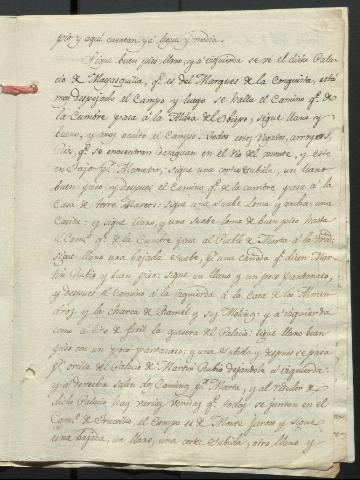 piso y aqui cuentan ya legua y media.
Sigue buen piso llano, y a izquierda se vé el dicho Pala-
cio de Magasquilla, qe. es del Marques de la Conquista, está
muy despejado el Campo y luego se halla el Camino qe. de
la Cumbre pasa á la Viña del Obispo, sigue llano y
bueno, y muy oculto el Campo: todos estos regatos, arroyos,
Rios, qe. se encuentran desaguan en el Rio del monte, y este
en Tajo pr. : sigue una corta subida, un llano
buen piso: y despues el Camino, qe. de la cumbre pasa á la
Casa de torre : sigue una suabe Loma y encima una
Casita: y sigue llano, y una suabe loma de buen piso hasta
el Camo. qe. de la Cumbre pasa al Pueblo de Marta a la
sigue llano una bajada suabe, pr. una cañada qe. dicen Mar-
tin Rubio y buen piso: sigue un llano y un poco pantanoso,
y despues el Camino á la izquierda á la Casa de los Almen-
dros y la Charca de y su Molino: y a izquierda
como á tiro de fusil la quesera del Palacio: sigue llano buen
piso con un poco pantanoso; y una subida y despues se pasa
pr. orilla del Palacio de Martin Rubio dejandole a izquierda:
y a derecha salen dos Caminos pa. Marta, y al rededor de
dicho Palacio hay varias veredas qe. todas se juntan en el
Camo. de Truxillo, el Campo es de Monte jaroso y sigue
una bajada, un llano, una corta subida, otro llano y